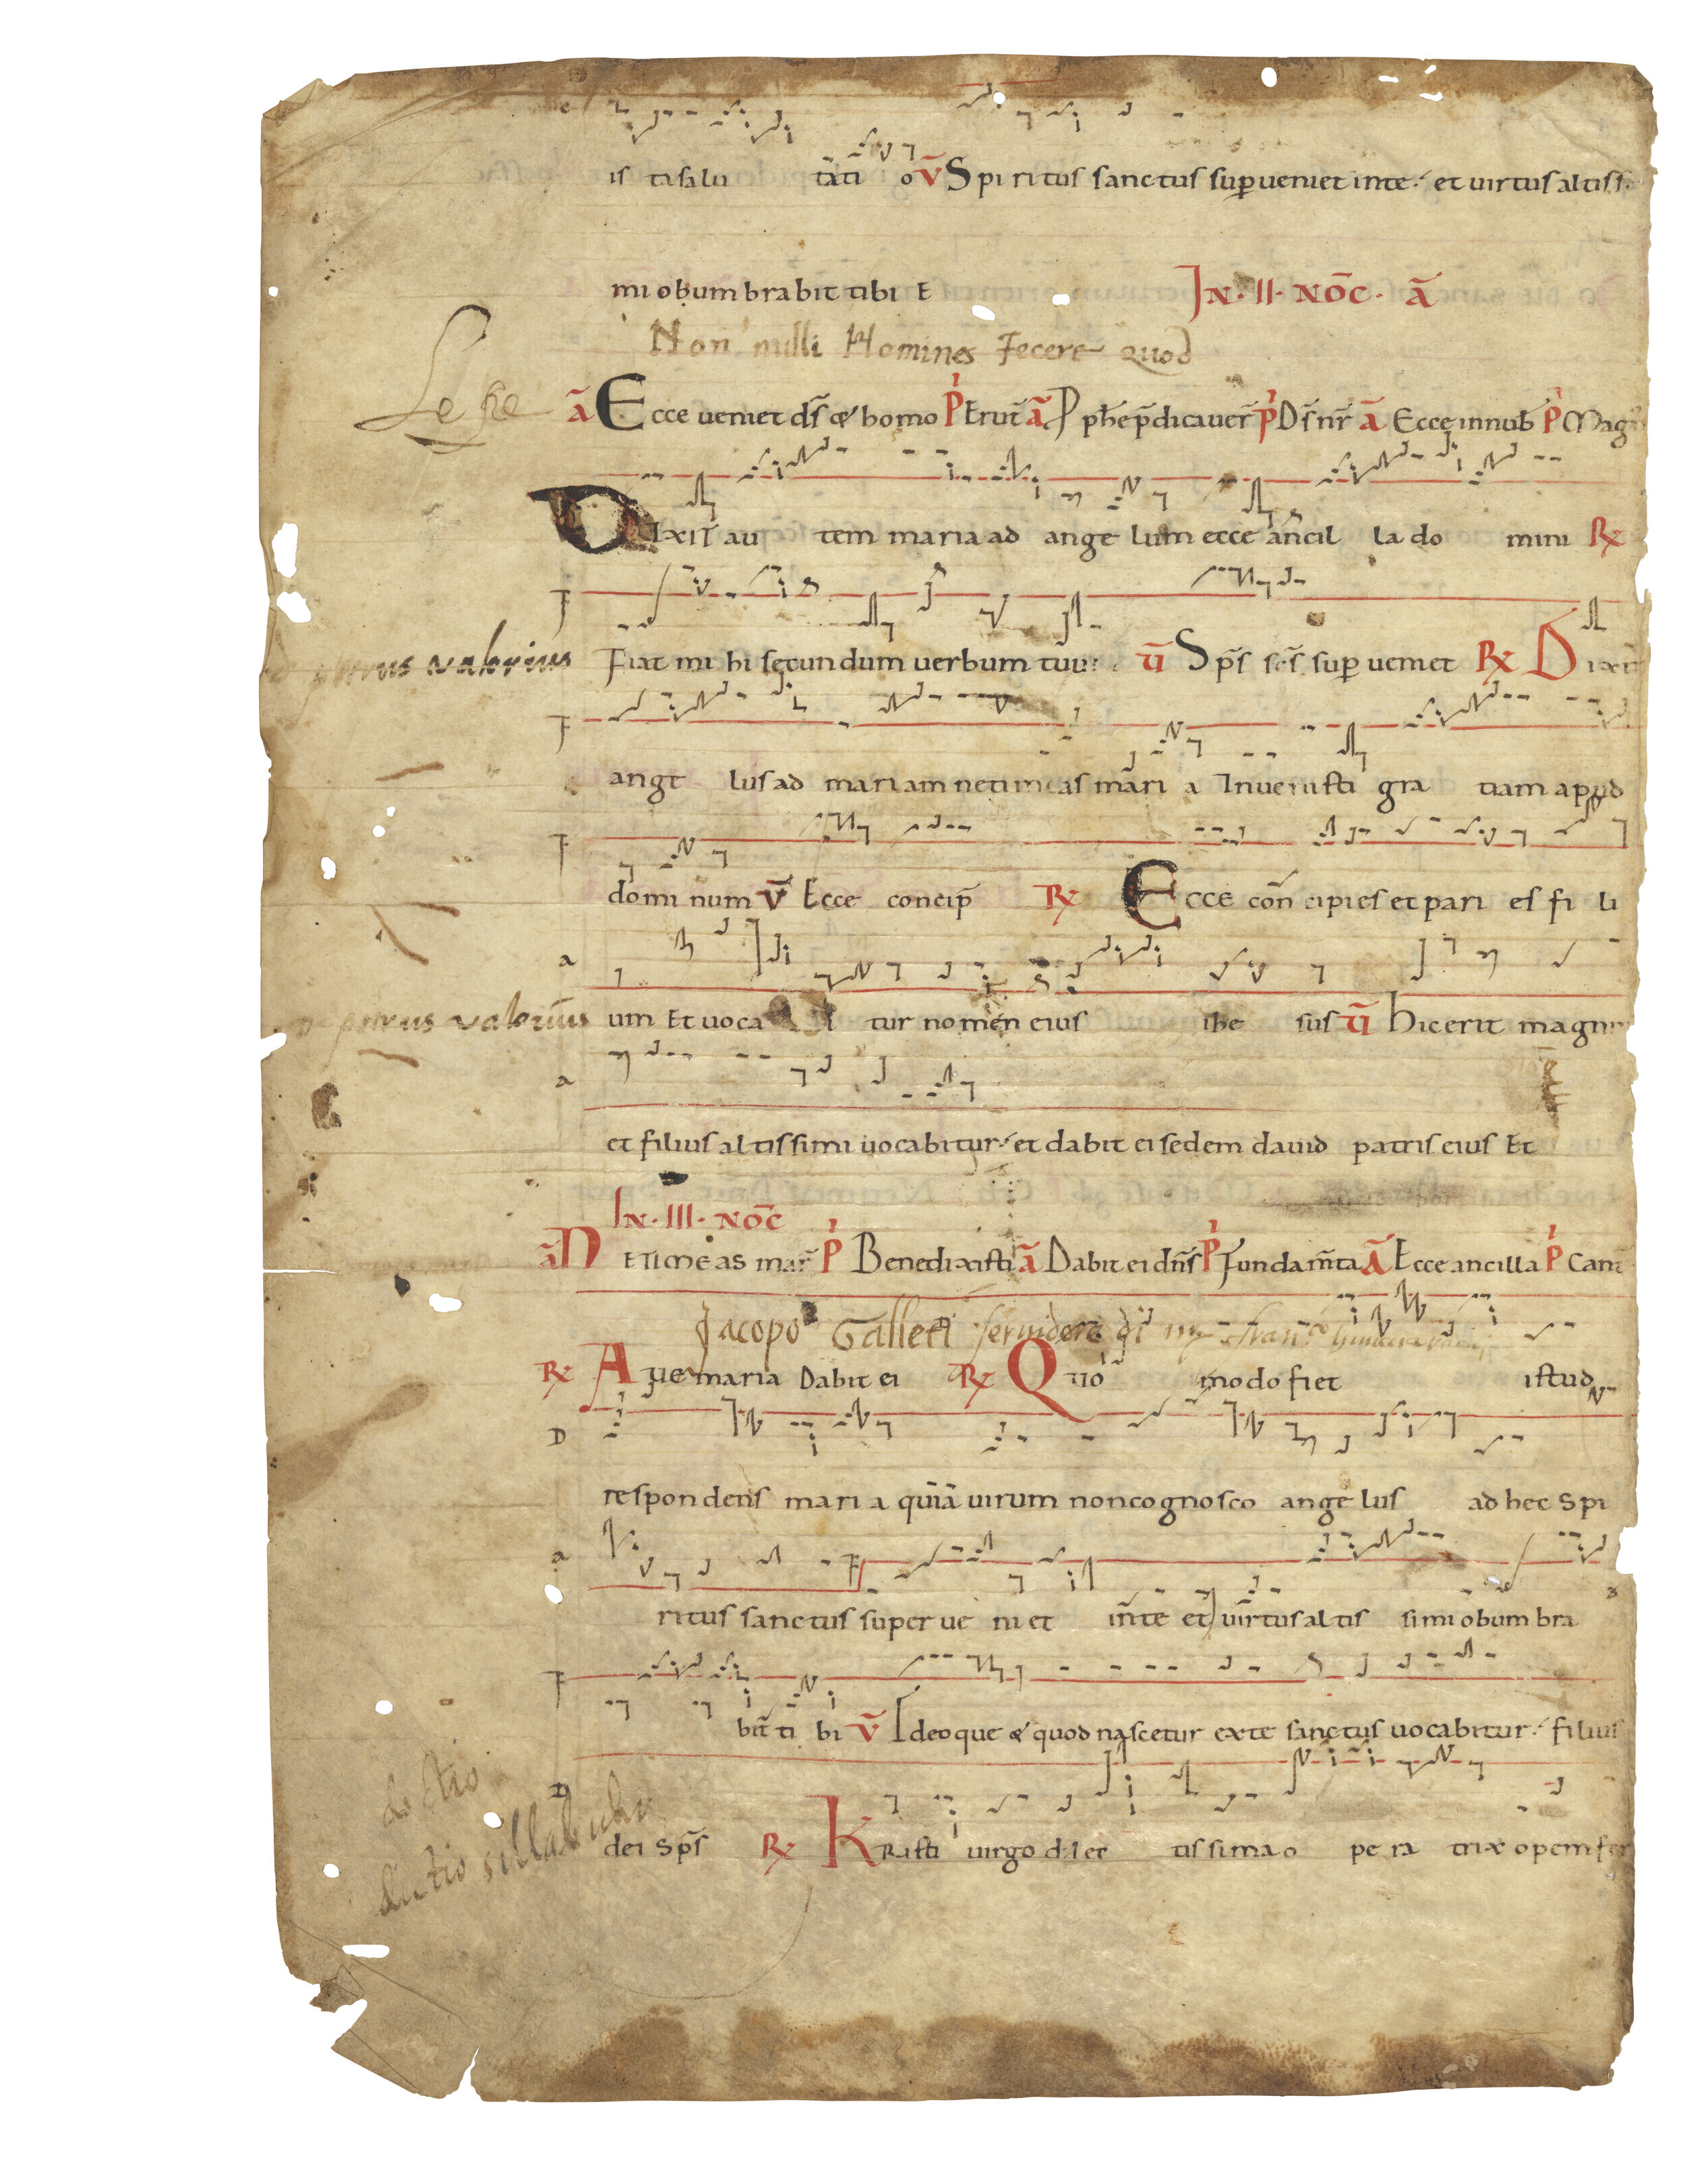 is ti salu tati o v̄ Spiritus sanctus sup̱ueniet inte et uirtus altiss
mi obumbrabit tibi E IN · II · NOC̄ · ā
Non nulli Homines Fecere quod
ā Ecce ueniet ds̄ & homo P Erut̄ ā P Ds̄ nr̄ ā Ecce in nub̄ P Mag
Dixit au tem maria ad ange lum ecce ancil la do mini R̸
Fiat mi hi secundum uerbum tuu v̄ Sp̄s sc̄s sup̱ ueniet R̸ Dixit
petrus valerius
ange lus ad mariam ne timeas mari a Inuenisti gra tiam apud
domi num v̄ Ecce concip̄ R̸ Ecce con cipies et pari es fi li
petrus valerius um Et uoca i tur nomen eius ihe sus v̄ hic erit magnu
et filius altissimi uocabitur et dabit ei sedem dauid patris eius Et
IN · III · NOC̄
ā Ne timeas mar̄ P Benedixisti ā Dabit ei dn̄s P Fundam̄ta ā Ecce ancilla P Cant
Jacopo Galleti seruidore di
R̸ Aue maria Dabit ei R̸ Quo modo fiet istud
respondens mari a quia uirum non cognosco ange lus ad hec Spi
ritus sanctus super ue ni et in te et uirtus al tis simi obum bra
bit ti bi v̄ Ideoque & quod nascetur ex te sanctus uocabitur filius
dei Sp̄s R̸ Kristi uirgo dilec tissima o pe ra trix opem fer
dictio sillab